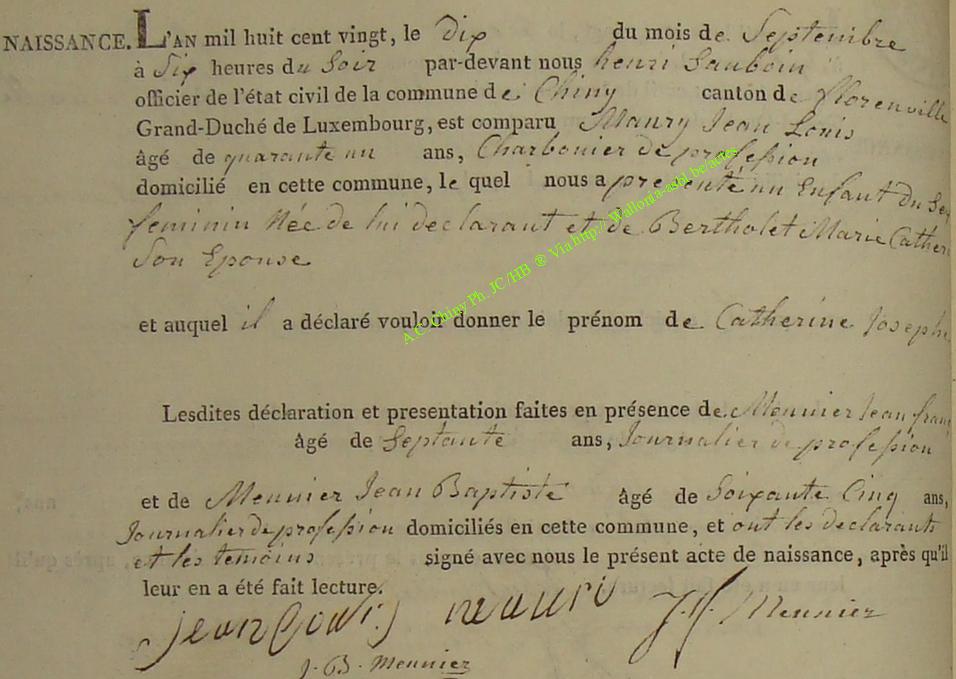 NAISSANCE. L'AN mil huit cent vingt, le dix du mois de Septembre
à Six heures du Soir par-devant nous henri Sauboin
officier de l'état civil de la commune de Chiny canton de florenville
Grand-Duché de Luxembourg, est comparu Maury Jean Louis
âgé de quarante un ans, Charbonier de profession
domicilié en cette commune, le quel nous a presenté un Enfant du Sex
feminin Née de lui declarant et de Bertholet Marie Cather
Son Epouse
et auquel il a déclaré vouloir donner le prénom de Catherine Josephe
Lesdites déclaration et presentation faites en présence de Meunier Jean franc
âgé de Septante ans, Journalier de profession
et de Meunier Jean Baptiste âgé de Soixante Cinq ans,
Journalier de profession domiciliés en cette commune, et ont les declarants
et les temoins signé avec nous le présent acte de naissance, après qu'il
leur en a été fait lecture.
Jean louis mauri J. f. Meunier
J. B. Meunier
A.C. Chiny Ph. JC/HB ® Via http://Wallonia-asbl.be/actes